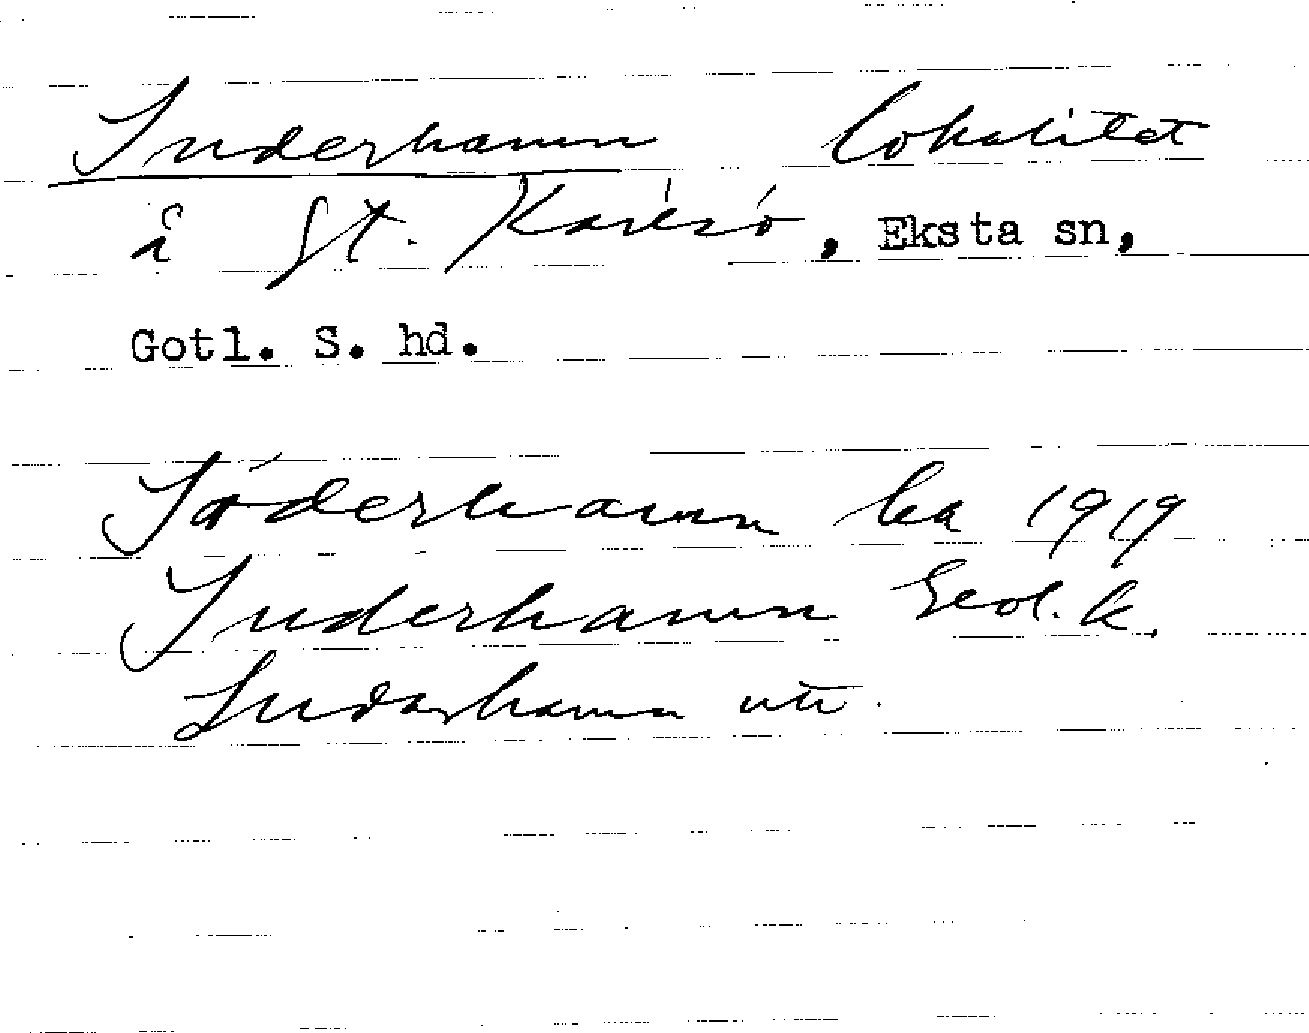 Suderhamn lokalitet
å St. Karlsö, Eksta sn,
Gotl. S. hd.
Söderhamn ba 1919
Suderhamn Geol. k.
Sudarhamn utt.